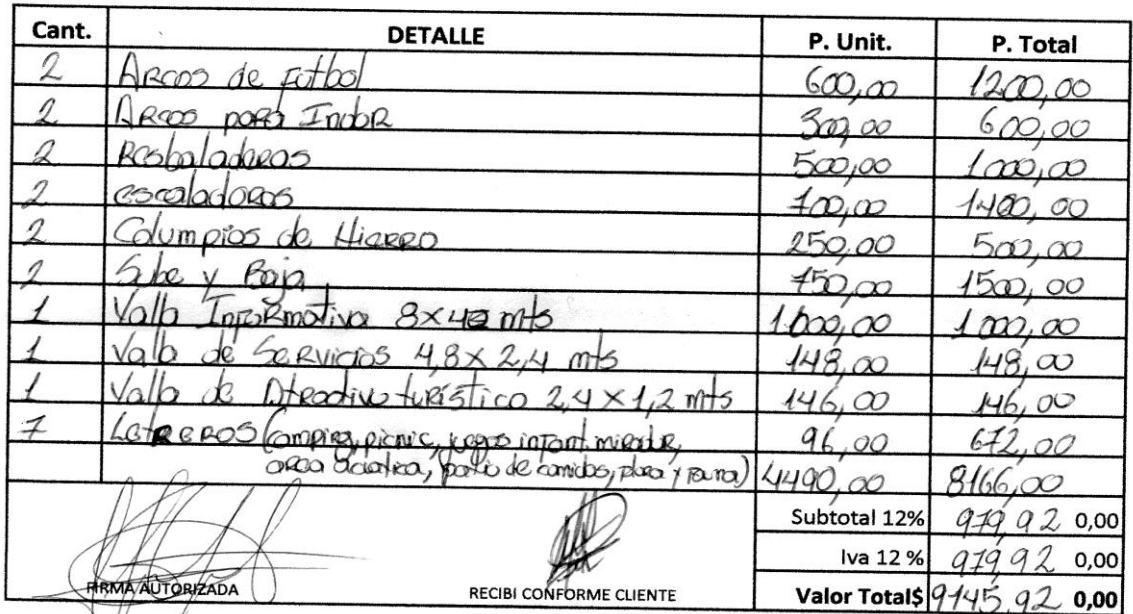 Cant. DETALLE P. Unit. P. Total
2 Arcos de Futbol 600,00 1200,00
2 Arcos para Indor 300,00 600,00
2 Resbaladeros 500,00 1000,00
2 escaladoras 700,00 1400,00
2 Columpios de Hierro 250,00 500,00
2 Sube y Baja 750,00 1500,00
1 Valla Informativa 8x4 mts 1000,00 1000,00
1 Valla de Servicios 4,8 x 2,4 mts 148,00 148,00
1 Valla de Atractivo turístico 2,4 x 1,2 mts 146,00 146,00
7 Letreros (camping, picnic, juegos infant. mirador, 96,00 672,00
area acuatica, patio de comidas, flora y fauna) 4490,00 8166,00
Subtotal 12% 979,92 0,00
Iva 12 % 979,92 0,00
FIRMA AUTORIZADA RECIBI CONFORME CLIENTE Valor Total$ 9145,92 0,00